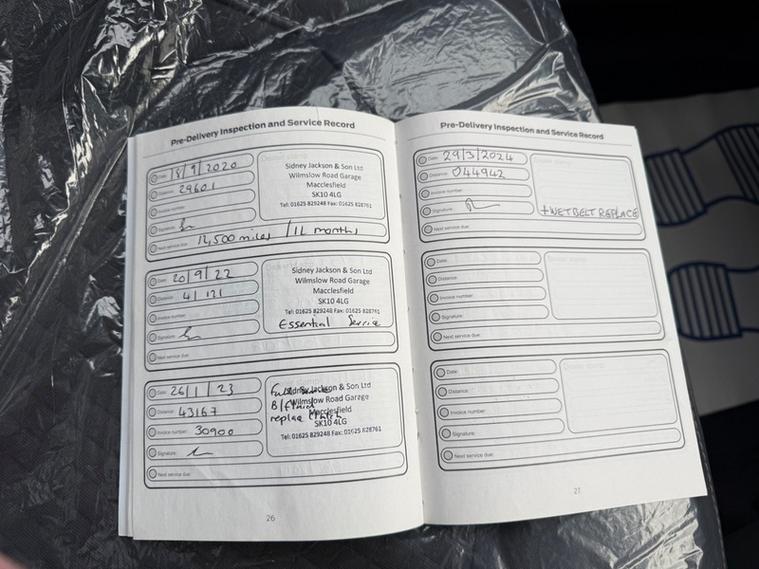 Pre-Delivery Inspection and Service Record
Date: 18/9/2020
Distance: 29601
Invoice number:
Signature:
Next service due: 12,500 miles / 12 months
Sidney Jackson & Son Ltd
Wilmslow Road Garage
Macclesfield
SK10 4LG
Tel: 01625 829248 Fax: 01625 828761
Date: 20/9/22
Distance: 41121
Invoice number:
Signature:
Next service due:
Sidney Jackson & Son Ltd
Wilmslow Road Garage
Macclesfield
SK10 4LG
Tel: 01625 829248 Fax: 01625 828761
Essential Service
Date: 26/1/23
Distance: 43167
Invoice number: 30900
Signature:
Next service due:
Full Service
B/fluid
replace
Sidney Jackson & Son Ltd
Wilmslow Road Garage
Macclesfield
SK10 4LG
Tel: 01625 829248 Fax: 01625 828761
26
Pre-Delivery Inspection and Service Record
Date: 29/3/2024
Distance: 044942
Invoice number:
Signature:
Next service due:
+WETBELT REPLACE
Date:
Distance:
Invoice number:
Signature:
Next service due:
Date:
Distance:
Invoice number:
Signature:
Next service due:
27